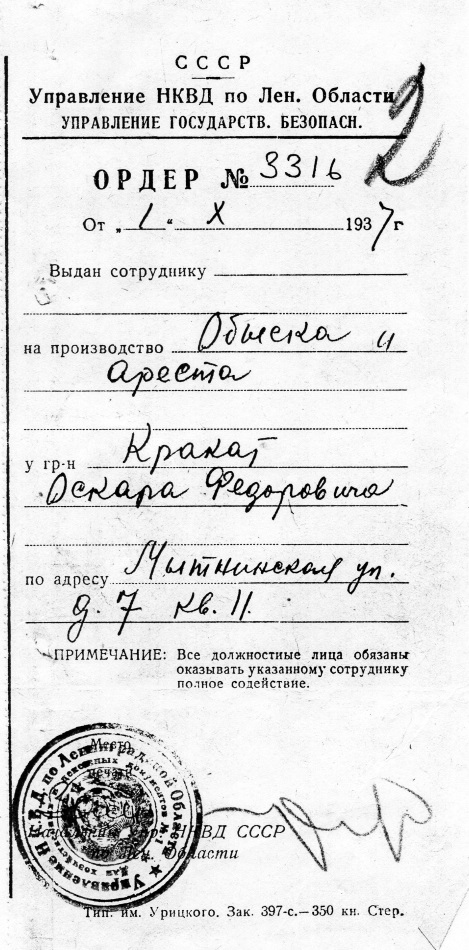 СССР
Управление НКВД по Лен. Области
УПРАВЛЕНИЕ ГОСУДАРСТВ. БЕЗОПАСН.
2
ОРДЕР № 3316
От „1“ X 1937 г
Выдан сотруднику
на производство Обыска и
Ареста
у гр-н Кракат
Оскара Федоровича
по адресу Мытнинская ул.
д. 7 кв. 11.
ПРИМЕЧАНИЕ: Все должностные лица обязаны
оказывать указанному сотруднику
полное содействие.
Место
печати
Управление Н.К.В.Д. по Ленинградской Области
Начальник Упр. НКВД СССР
по Лен. Области
Тип. им. Урицкого. Зак. 397-с.—350 кн. Стер.